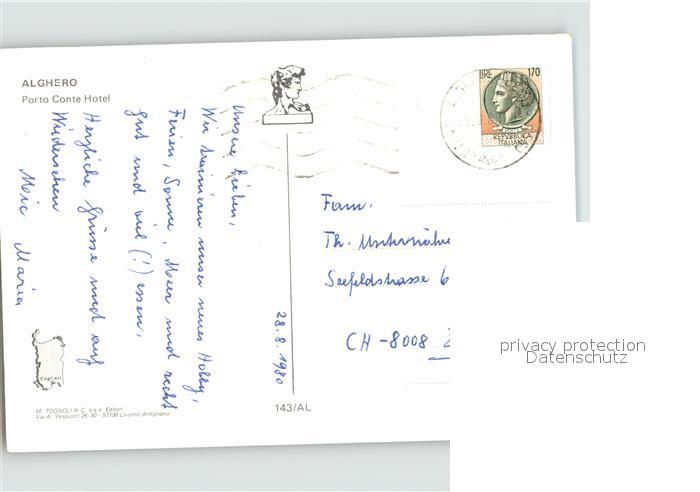 ALGHERO
Porto Conte Hotel
Unsere Lieben,
Wir trainieren unser neues Hobby,
Ferien, Sonne, Meer und recht
gut und viel (!) essen.
Herzliche Grüsse und auf
Wiedersehen
Maria
28.8.1980
Cagliari
M. TOGNOLI & C. s.a.s. Editori
Via A. Vespucci 26-30 - 57100 Livorno Antignano
143/AL
LIRE 170
REPVBBLICA
ITALIANA
Fam.
Th.
Seefeldstrasse 6
CH-8008 Z
privacy protection
Datenschutz